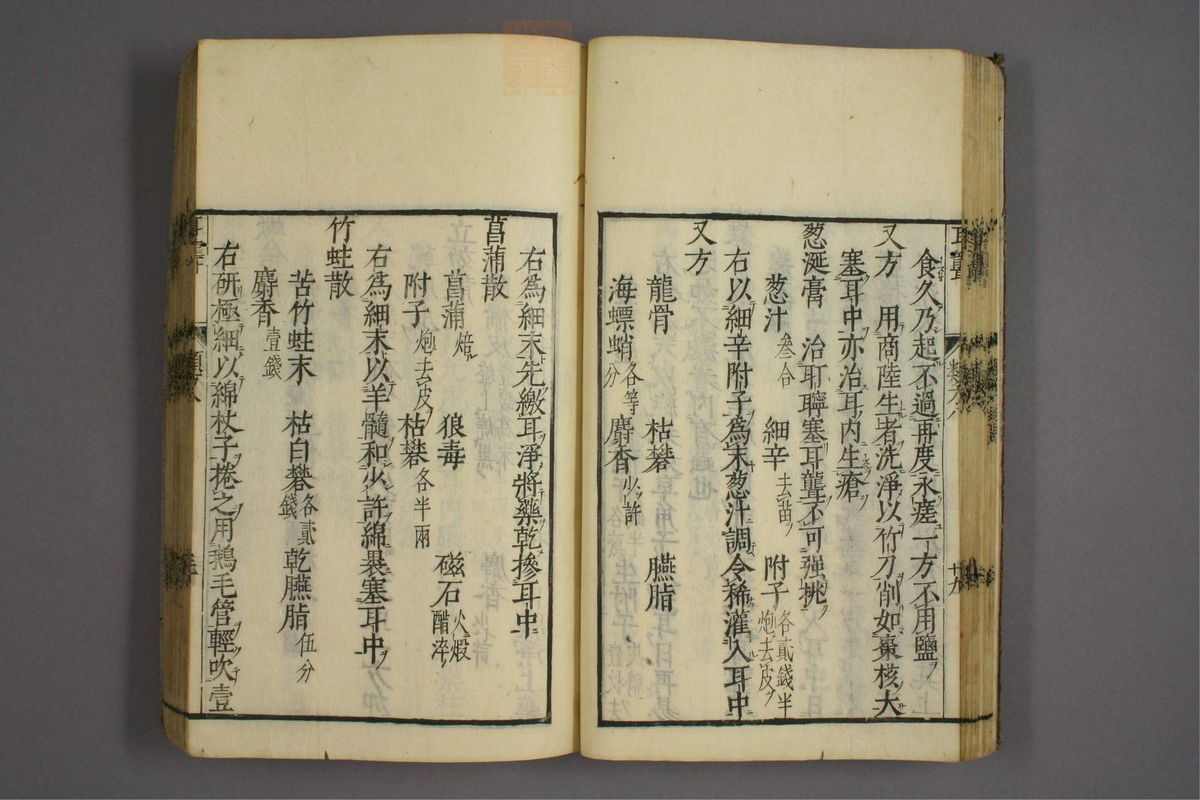 食久乃起不過再度永瘥一方不用鹽
又方 用商陸生者洗淨以竹刀削如棗核大
塞耳中亦治耳内生瘡
葱涎膏 治耵聹塞耳聾不可强挑
葱汁叄合 細辛去苗 附子各貳錢半炮去皮
右以細辛附子為末葱汁調令稀灌入耳中
又方
龍骨 枯礬 臙脂
海螵蛸各等分 麝香少許
右爲細末先繳耳淨將藥乾摻耳中
菖蒲散
菖蒲焙 狼毒 磁石火煅醋淬
附子炮去皮 枯礬各半兩
右爲細末以羊髓和少許綿裹塞耳中
竹蛀散
苦竹蛀末 枯白礬各貳錢 乾臙脂伍分
麝香壹錢
右研極細以綿杖子捲之用鵝毛管輕吹壹